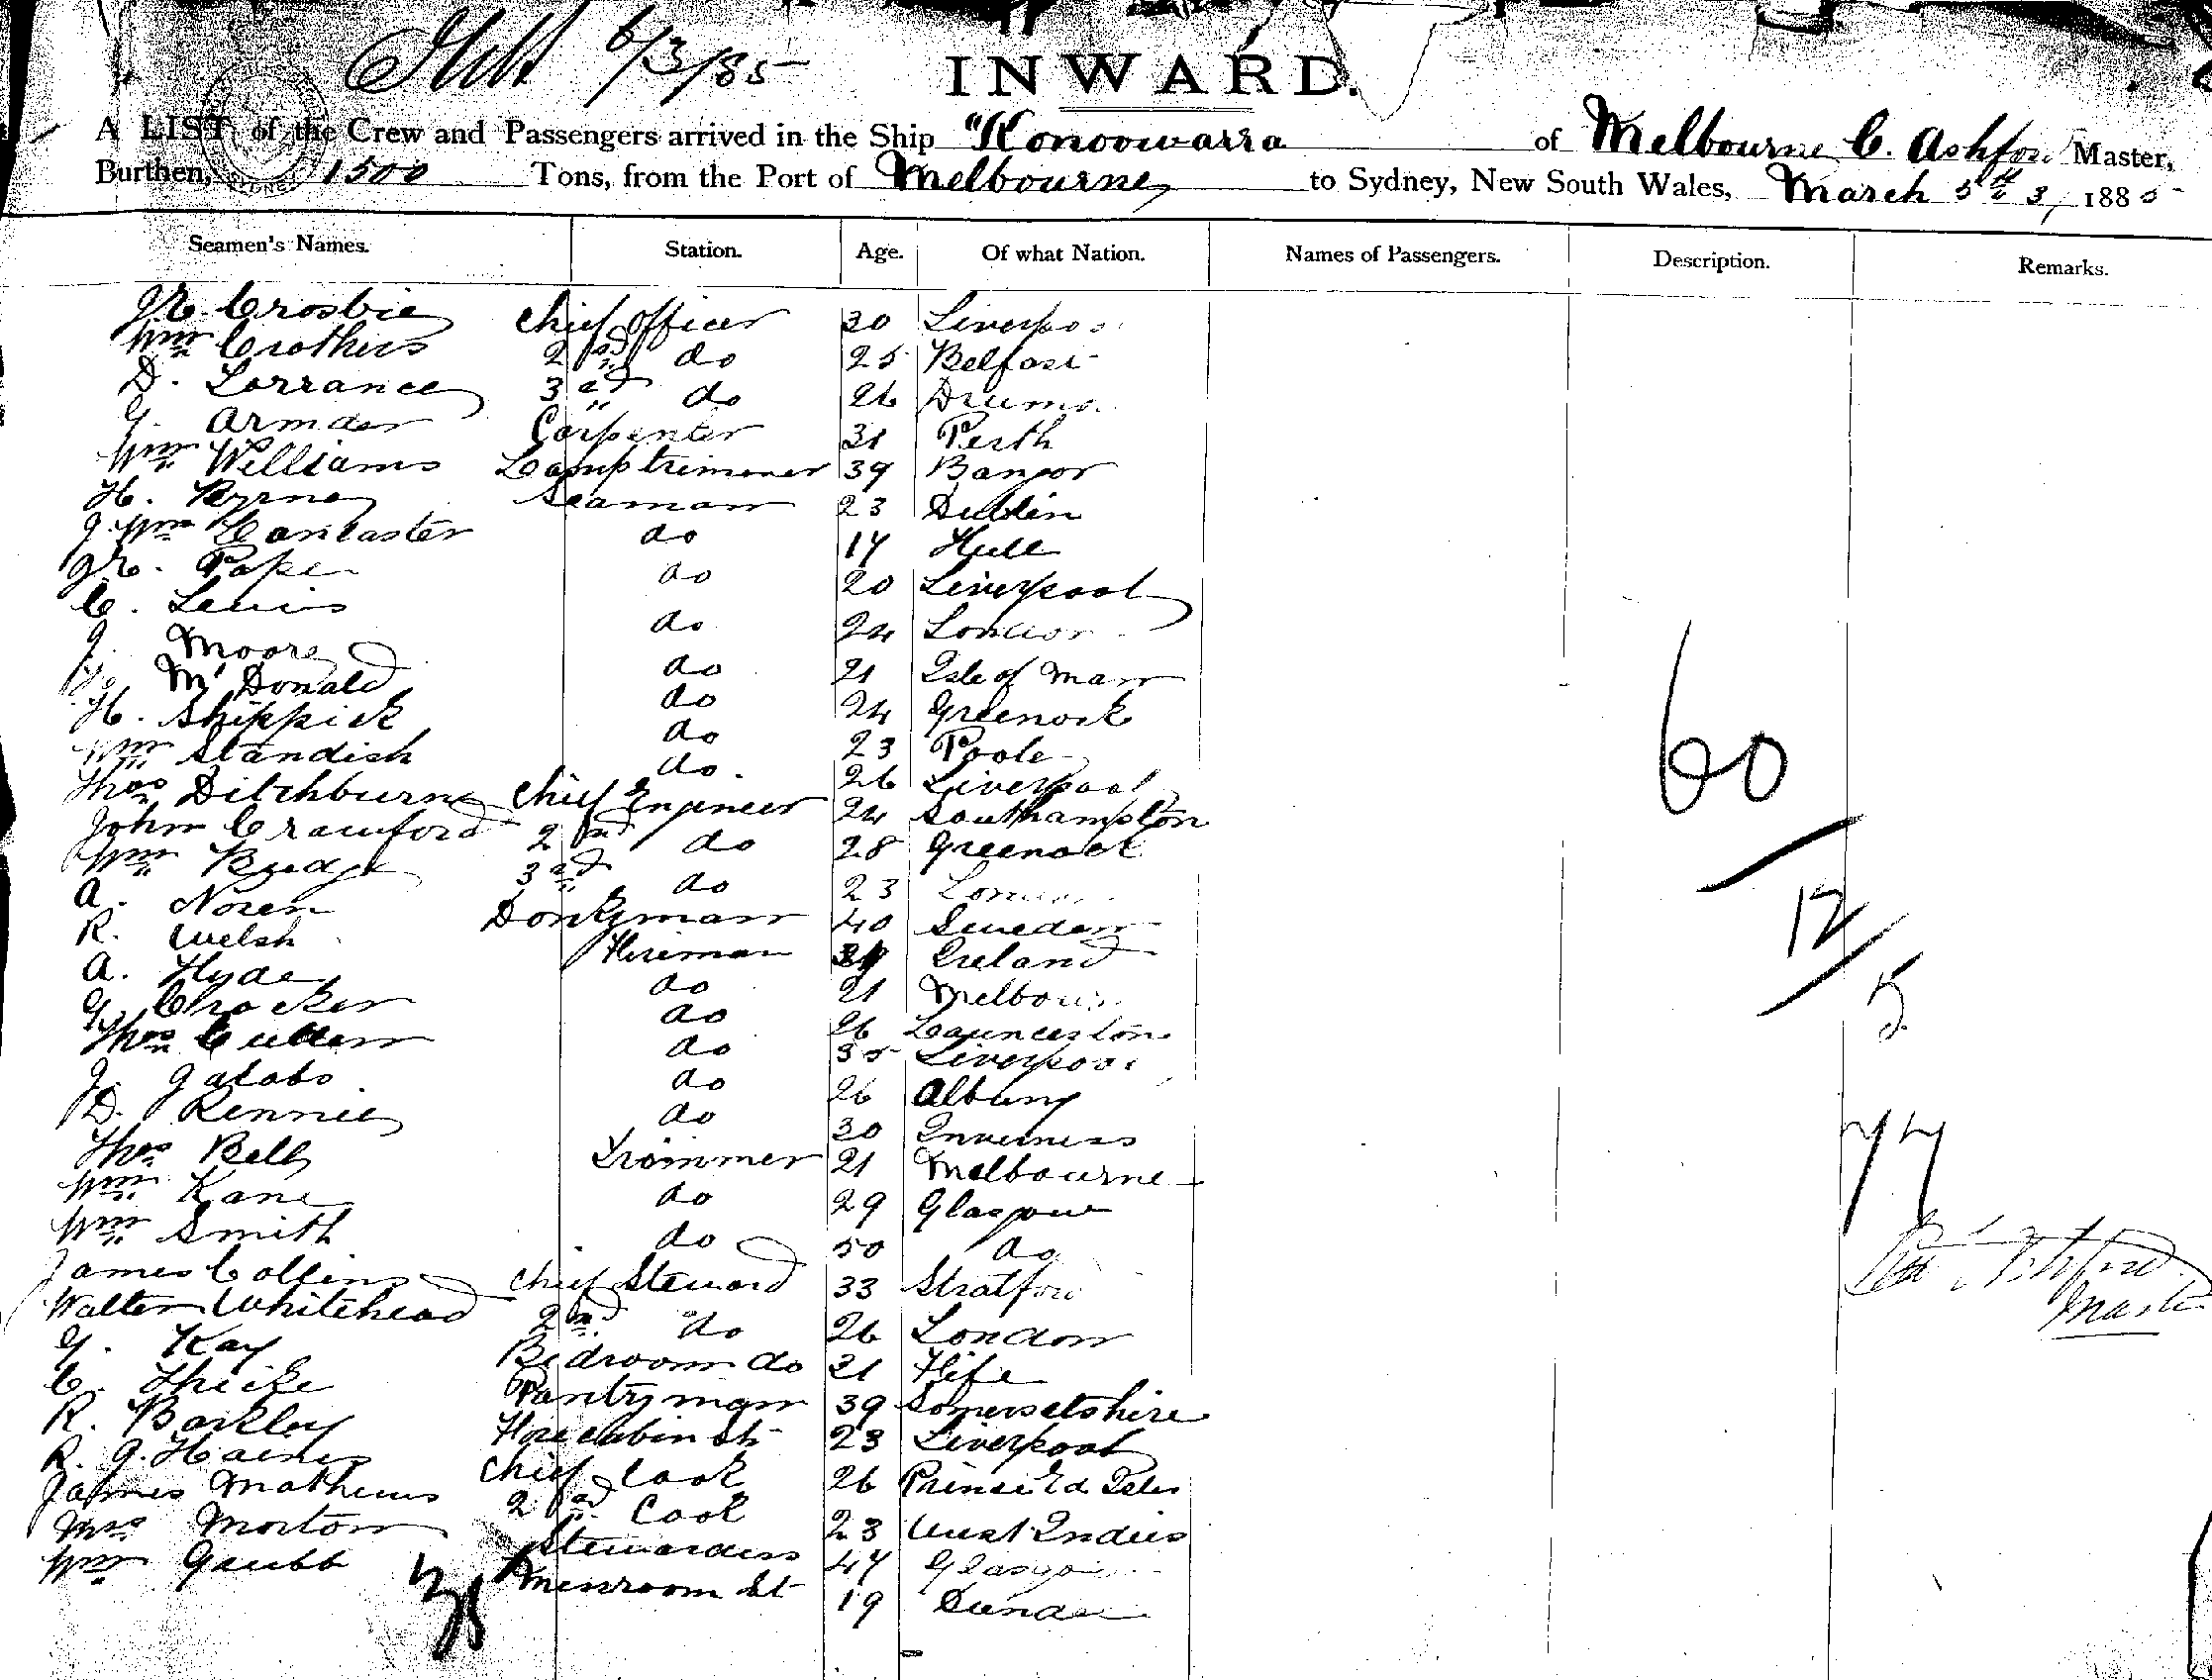 6/3/85
INWARD.
A LIST of the Crew and Passengers arrived in the Ship "Konoowarra of Melbourne C. Ashford Master,
Burthen, 1500 Tons, from the Port of Melbourne to Sydney, New South Wales, March 5th 3, 1885
Seamen's Names. Station. Age. Of what Nation. Names of Passengers. Description. Remarks.
Crosbie Chief Officer 30 Liverpoo
Wm Crothers 2nd do 25 Belfast
D. Lorrance 3rd do 26
G. Armder Carpenter 31 Perth
Wm Williams Lamptrimmer 39 Bangor
H. Byrne Seaman 23 Dublin
J. Wm Lancaster do 17 Hull
Pope do 20 Liverpool
C. Lewis do 24 London
J. Moore do 21 Isle of Man
McDonald do 24 Greenock
H. Shippick do 23 Poole
Wm Standish do. 26 Liverpool
Thos Ditchburne Chief Engineer 24 Southampton
John Crawford 2nd do 28 Greenock
Wm Budge 3rd do 23
A. Noren Donkyman 40 Sweden
R. Welsh Fireman Ireland
A. Hyde do 21 Melbour
G. Crocker do 26 Launceston
Thos Cullen do 35 Liverpool
J. Jalobs do 26 Albury
D. Rennie do 30 Inverness
Thos Bell Trimmer 21 Melbourne
Wm Kane do 29 Glasgow
Wm Smith do 50 do
James Collins Chief Steward 33 Stratford
Walter Whitehead 2nd do 26 London
G. Kay Bedroom do 21 Fife
C. Pantryman 39 Somersetshire
R. Barkley Forecabin St 23 Liverpool
R. J. Haines Chief Cook 26 Prince Ed Isles
James Mathews 2nd Cook 23 West Indies
Mrs Morton Stewardess 47 Glasgow
Wm Grubb Messroom St 19 Dundee
60
12
5
77
Ashford
Master